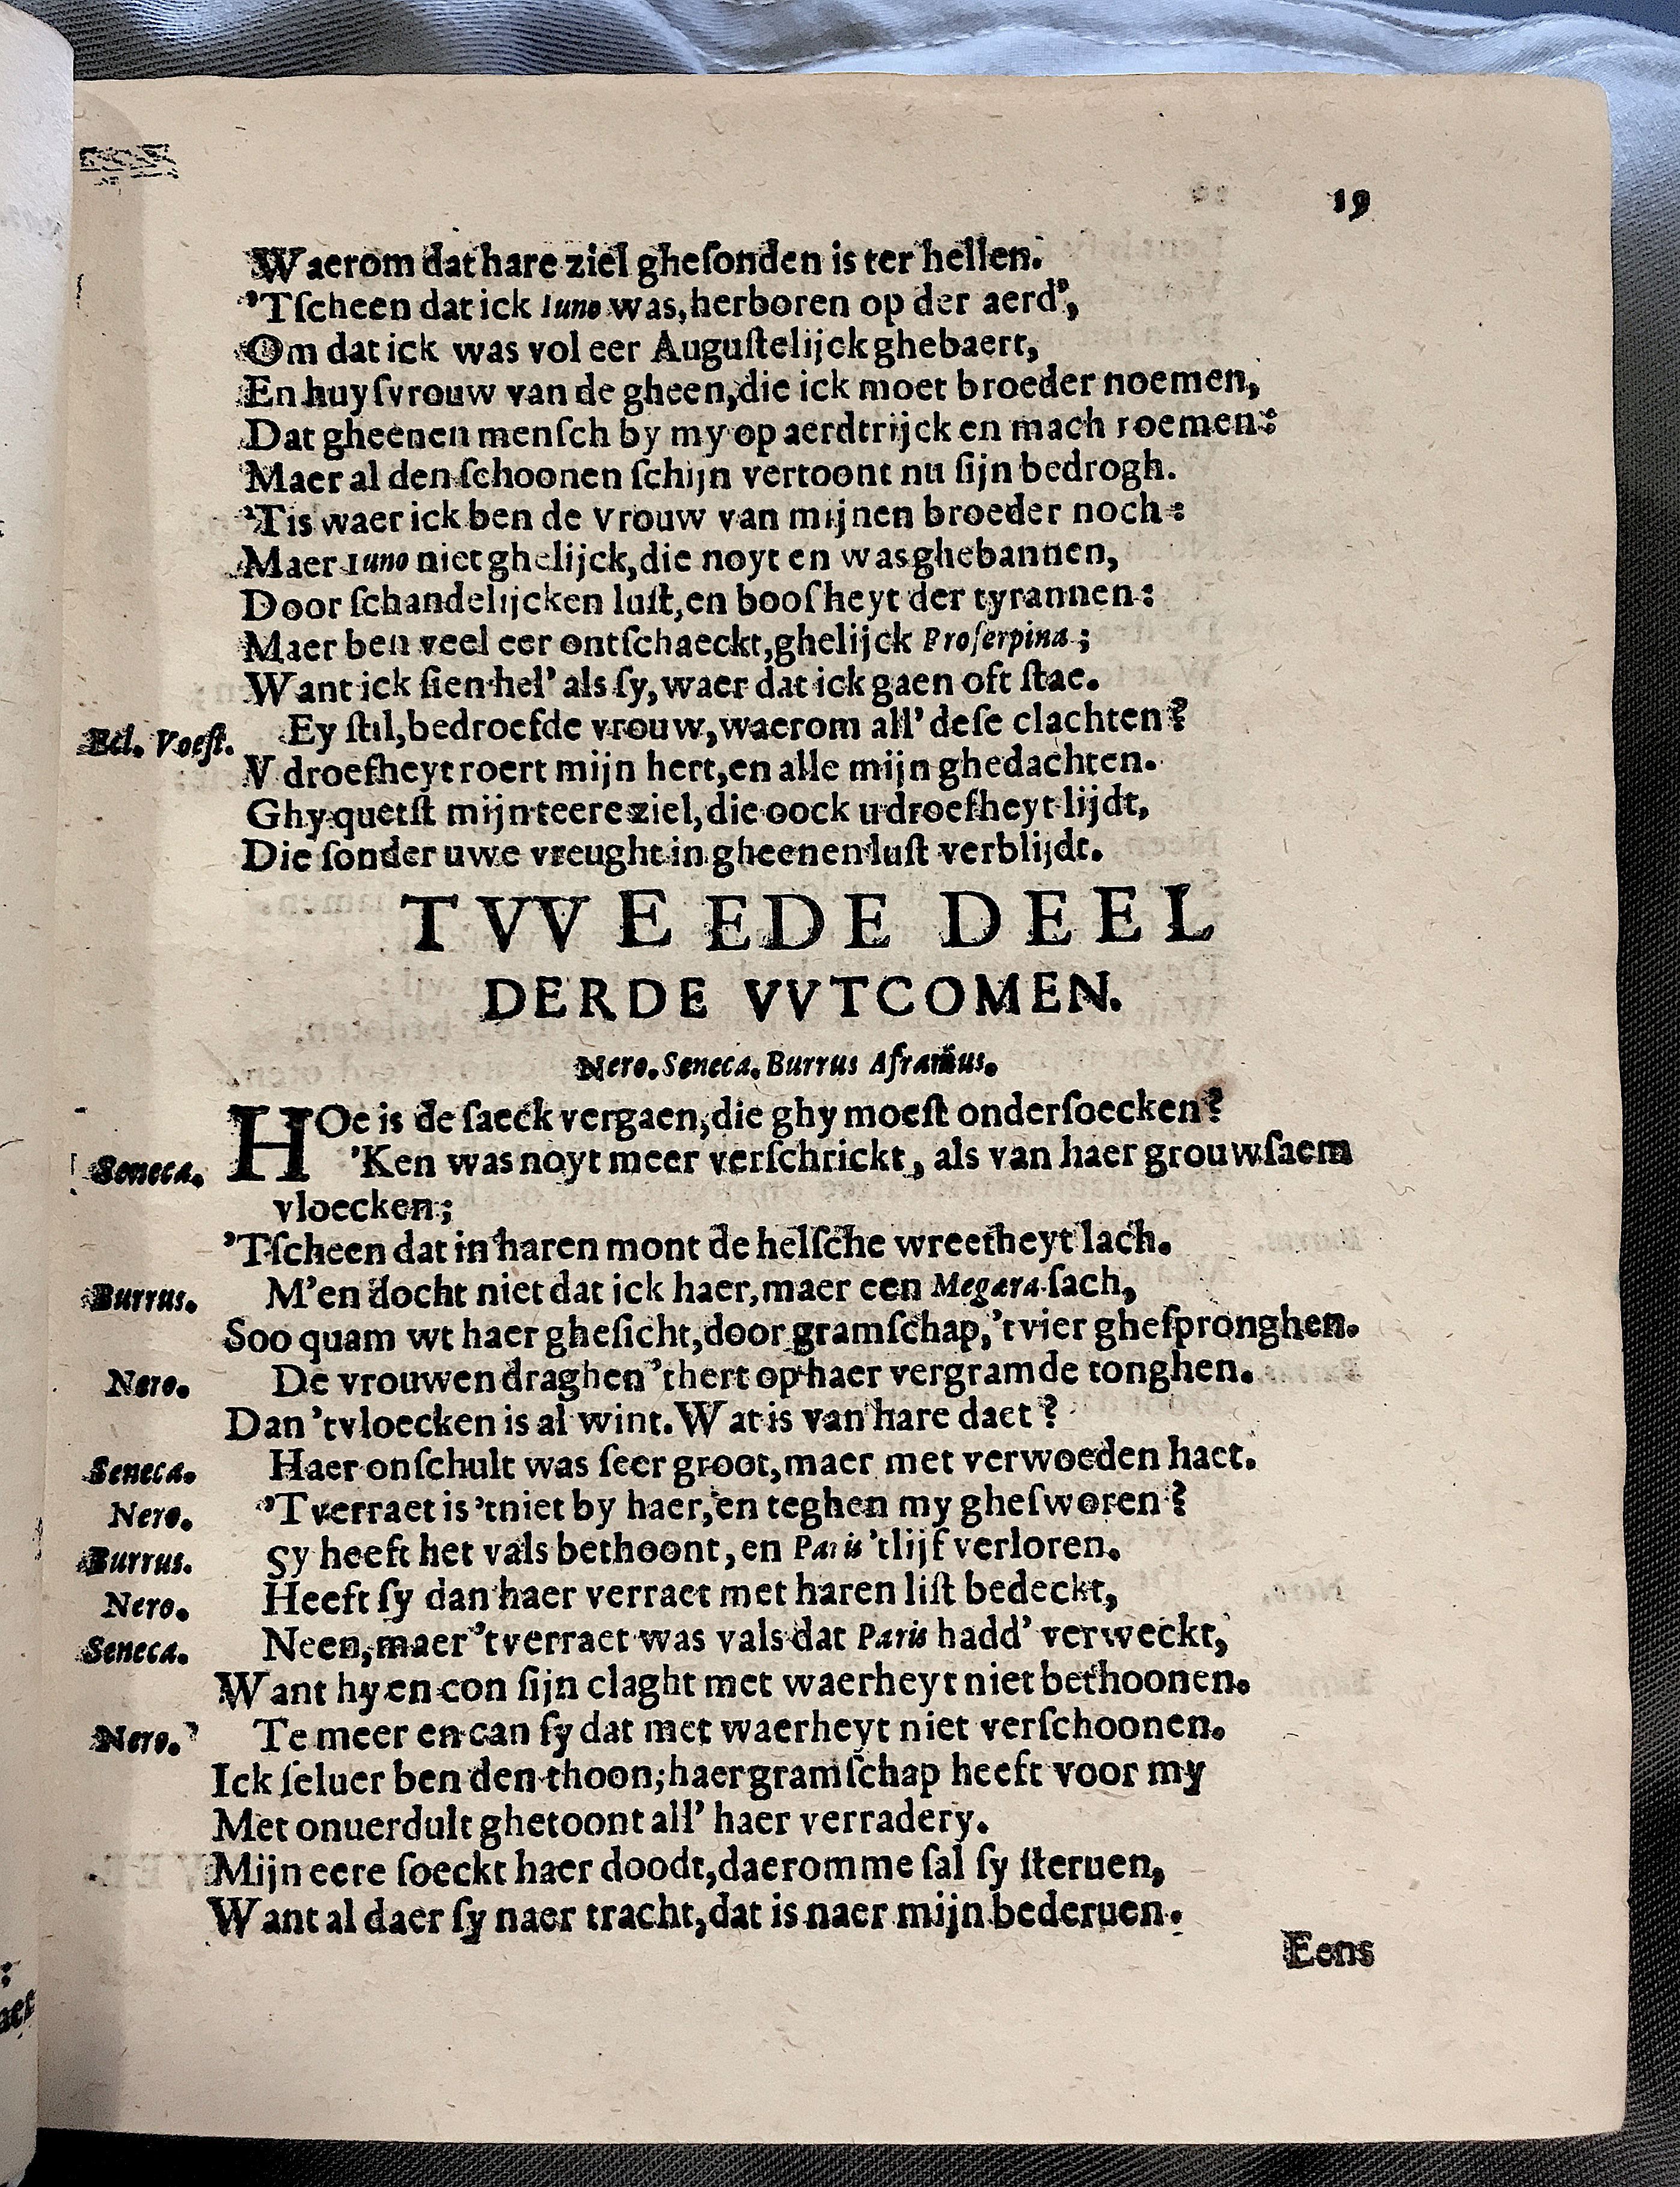 19
Waerom dat hare ziel gheſonden is ter hellen.
'Tſcheen dat ick Iuno was, herboren op der aerd',
Om dat ick was vol eer Auguſtelijck ghebaert,
En huyſvrouw van de gheen, die ick moet broeder noemen,
Dat gheenen menſch by my op aerdtrijck en mach roemen:
Maer al den ſchoonen ſchijn vertoont nu ſijn bedrogh.
'Tis waer ick ben de vrouw van mijnen broeder noch:
Maer Iuno niet ghelijck, die noyt en was ghebannen,
Door ſchandelijcken luſt, en booſheyt der tyrannen:
Maer ben veel eer ontſchaeckt, ghelijck Proſerpina;
Want ick ſien hel' als ſy, waer dat ick gaen oft ſtae.
Ecl. Voeſt. Ey ſtil, bedroefde vrouw, waerom all' deſe clachten?
V droefheyt roert mijn hert, en alle mijn ghedachten.
Ghy quetſt mijn teere ziel, die oock u droefheyt lijdt,
Die ſonder uwe vreught in gheenen luſt verblijdt.
TVVEEDE DEEL
DERDE VVTCOMEN.
Nero. Seneca. Burrus Afranius.
HOe is de ſaeck vergaen, die ghy moeſt onderſoecken?
Seneca. 'Ken was noyt meer verſchrickt, als van haer grouwſaem
vloecken;
'Tſcheen dat in haren mont de helſche wreetheyt lach.
Burrus. M'en docht niet dat ick haer, maer een Megæra ſach,
Soo quam wt haer gheſicht, door gramſchap, 't vier gheſpronghen.
Nero. De vrouwen draghen 'thert op haer vergramde tonghen.
Dan 'tvloecken is al wint. Wat is van hare daet?
Seneca. Haer onſchult was ſeer groot, maer met verwoeden haet.
Nero. 'Tverraet is 'tniet by haer, en teghen my gheſworen?
Burrus. Sy heeft het vals bethoont, en Paris 'tlijf verloren.
Nero. Heeft ſy dan haer verraet met haren liſt bedeckt,
Seneca. Neen, maer 'tverraet was vals dat Paris hadd' verweckt,
Want hy en con ſijn claght met waerheyt niet bethoonen.
Nero. Te meer en can ſy dat met waerheyt niet verſchoonen.
Ick ſeluer ben den thoon; haer gramſchap heeft voor my
Met onuerdult ghetoont all' haer verradery.
Mijn eere ſoeckt haer doodt, daeromme ſal ſy ſteruen,
Want al daer ſy naer tracht, dat is naer mijn bederuen.
Eens